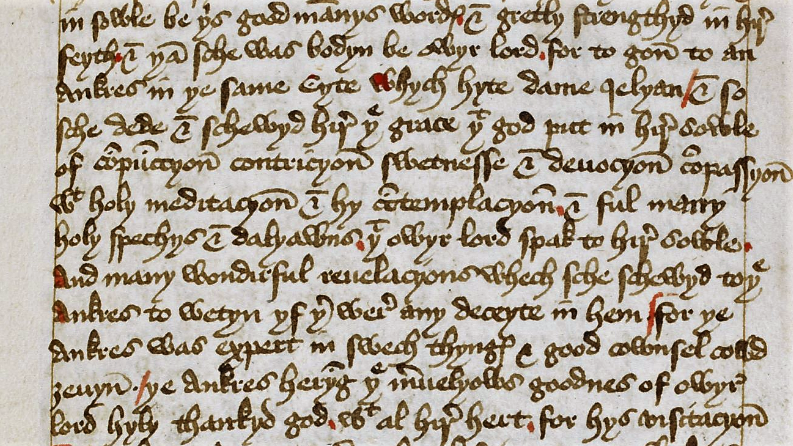 in sowle be yis good manys wordys. & gretly strengthyd in hir
feyth. & yan sche was bodyn be owyr lord. for to gon to an
ankres in ye same Cyte whych hyte dame Jelyan / & so
sche dede & schewyd hir ye grace yt god putt in hir sowle
of cōpūccyon contricyon swetnesse & deuocyon cōpassyon
wt holy meditacyon & hy cōtemplacyon. & ful many
holy spechys & dalyawns. yt owyr lord spak to hir sowle.
And many wondirful reuelacyons whech sche schewyd to ye
Ankres to wetyn yf yr wer any deceyte in hem / for ye
Ankres was expert in swech thyngys & good cownsel cowd
zeuyn. / ye Ankres heryng ye mˉuelyows goodnes of owyr
lord hyly thankyd god. wt al hir hert. for hys visitacyon